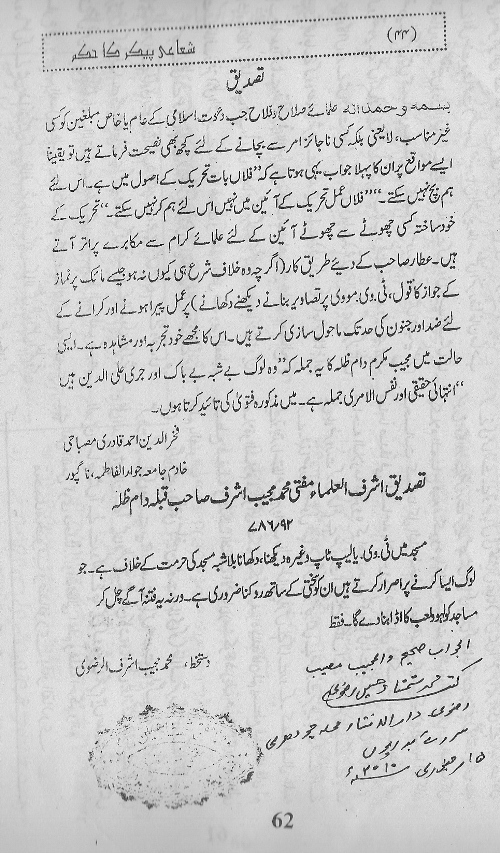 (۴۴)
شعاعی پیکر کا حکم
تصدیق
بسمہ وحمدہ علمائے صلاح و فلاح جب دعوت اسلامی کے عام یا خاص مبلغین کو کسی
غیر مناسب، لایعنی بلکہ کسی ناجائز امر سے بچانے کے لئے کچھ بھی نصیحت فرماتے ہیں تو یقیناً
ایسے مواقع پر ان کا پہلا جواب یہی ہوتا ہے کہ ”فلاں بات تحریک کے اصول میں ہے۔ اس لئے
ہم بچ نہیں سکتے۔“ ”فلاں عمل تحریک کے آئین میں نہیں اس لئے ہم کر نہیں سکتے۔“ تحریک کے
خود ساختہ کسی چھوٹے سے چھوٹے آئین کے لئے علمائے کرام سے مکابرے پر اتر آتے
ہیں۔ عطار صاحب کے دیئے طریق کار (اگر چہ وہ خلاف شرع ہی کیوں نہ ہو جیسے مائک پر نماز
کے جواز کا قول، ٹی۔وی۔مووی پر تصاویر بنانے دیکھنے دکھانے) پر عمل پیرا ہونے اور کرانے کے
لئے ضد اور جنون کی حد تک ماحول سازی کرتے ہیں۔ اس کا مجھے خود تجربہ اور مشاہدہ ہے۔ ایسی
حالت میں مجیب مکرم دام ظلہ کا یہ جملہ کہ ”وہ لوگ بے شبہ بے باک اور جری علی الدین ہیں
“ انتہائی حقیقی اور نفس الامری جملہ ہے۔ میں مذکورہ فتویٰ کی تائید کرتا ہوں۔
فخر الدین احمد قادری مصباحی
خادم جامعہ جواد الفاطمہ، ناگپور
تصدیق اشرف العلماء مفتی محمد مجیب اشرف صاحب قبلہ دام ظلہ
۷۸۶/۹۲
مسجد میں ٹی۔وی۔ یا لیپ ٹاپ وغیرہ دیکھنا، دکھانا بلا شبہ مسجد کی حرمت کے خلاف ہے۔ جو
لوگ ایسا کرنے پر اصرار کرتے ہیں ان کو سختی کے ساتھ روکنا ضروری ہے۔ ورنہ یہ فتنہ آگے چل کر
مساجد کو لہو و لعب کا اڈا بنا دے گا۔ فقط
دستخط، محمد مجیب اشرف الرضوی
الجواب صحیح والمجیب مصیب
رضوی دار الافتاء محلہ چودھری
62